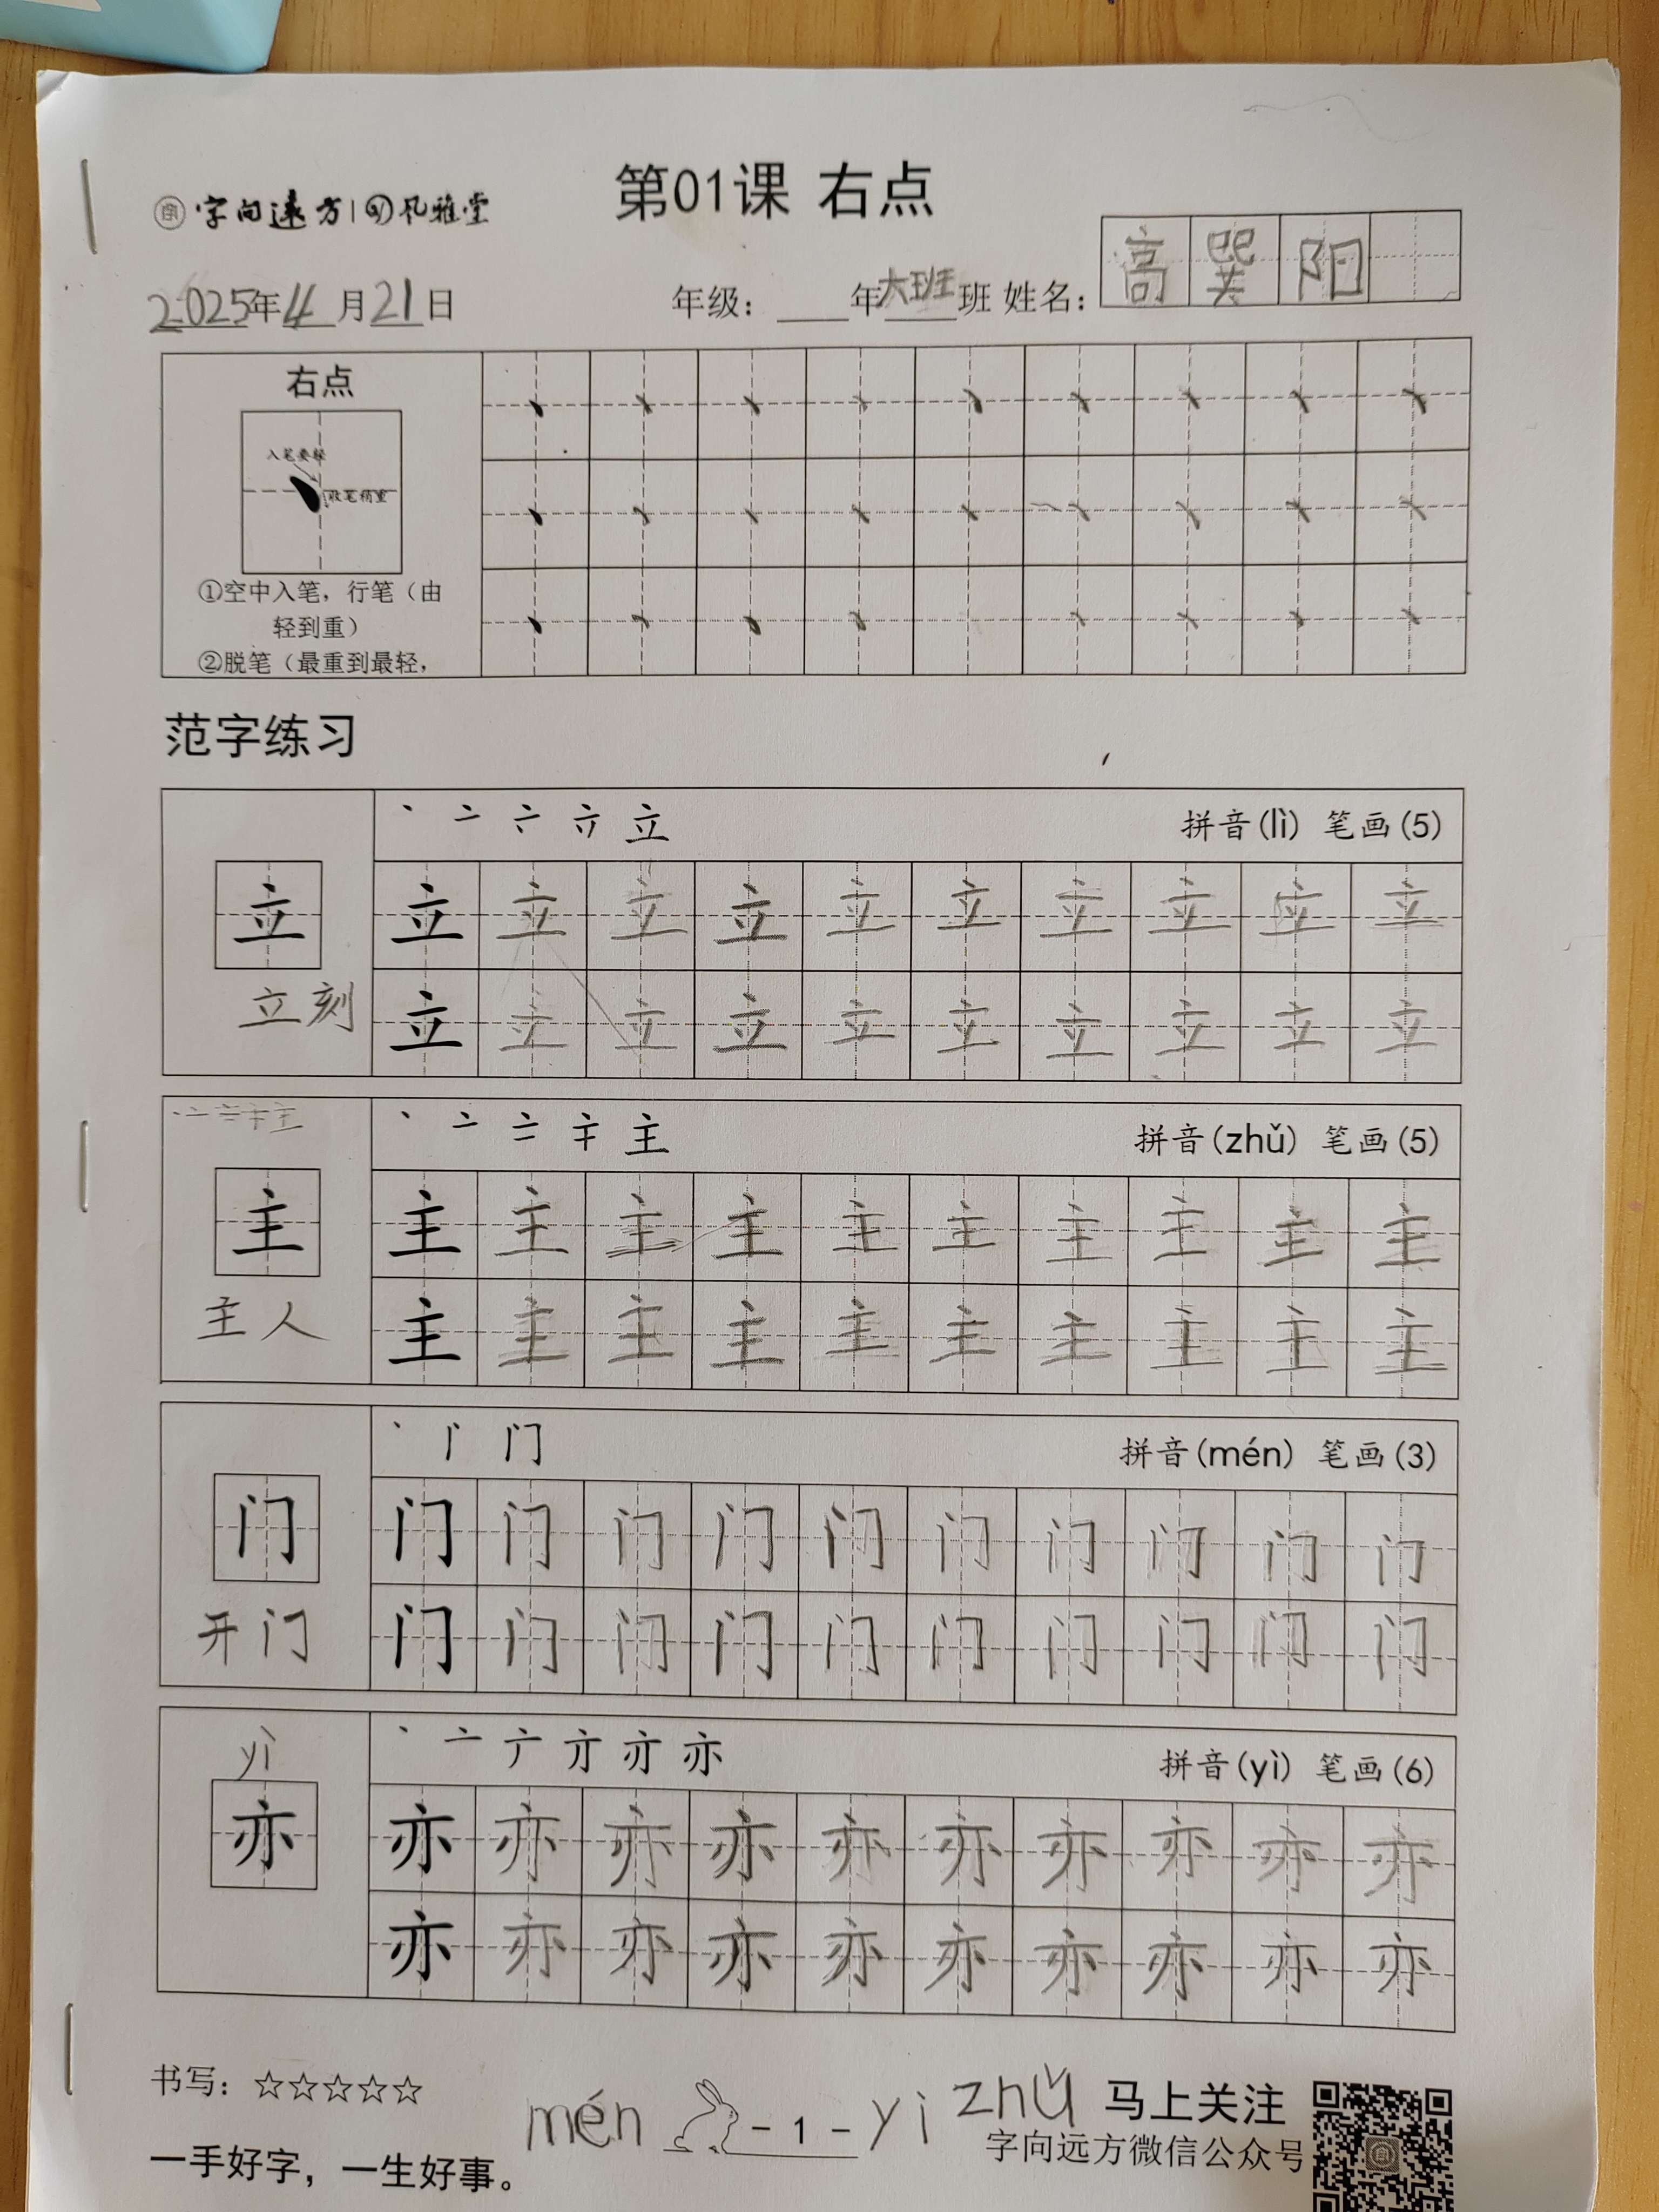 字向远方 风雅堂
第01课 右点
2025年4月21日 年级：____年大班班 姓名：高巽阳
右点
入笔要轻
收笔稍重
①空中入笔，行笔（由
轻到重）
②脱笔（最重到最轻，
范字练习
立 拼音(lì) 笔画(5)
立 立 立 立 立 立 立 立 立 立 立
立 立 立 立 立 立 立 立 立 立
立刻
主 拼音(zhǔ) 笔画(5)
主 主 主 主 主 主 主 主 主 主 主
主 主 主 主 主 主 主 主 主 主
主人
门 拼音(mén) 笔画(3)
门 门 门 门 门 门 门 门 门 门 门
门 门 门 门 门 门 门 门 门 门
开门
yì
亦 拼音(yì) 笔画(6)
亦 亦 亦 亦 亦 亦 亦 亦 亦 亦 亦
亦 亦 亦 亦 亦 亦 亦 亦 亦 亦
书写：☆☆☆☆☆
mén - 1 - yi zhǔ 马上关注
一手好字，一生好事。
字向远方微信公众号